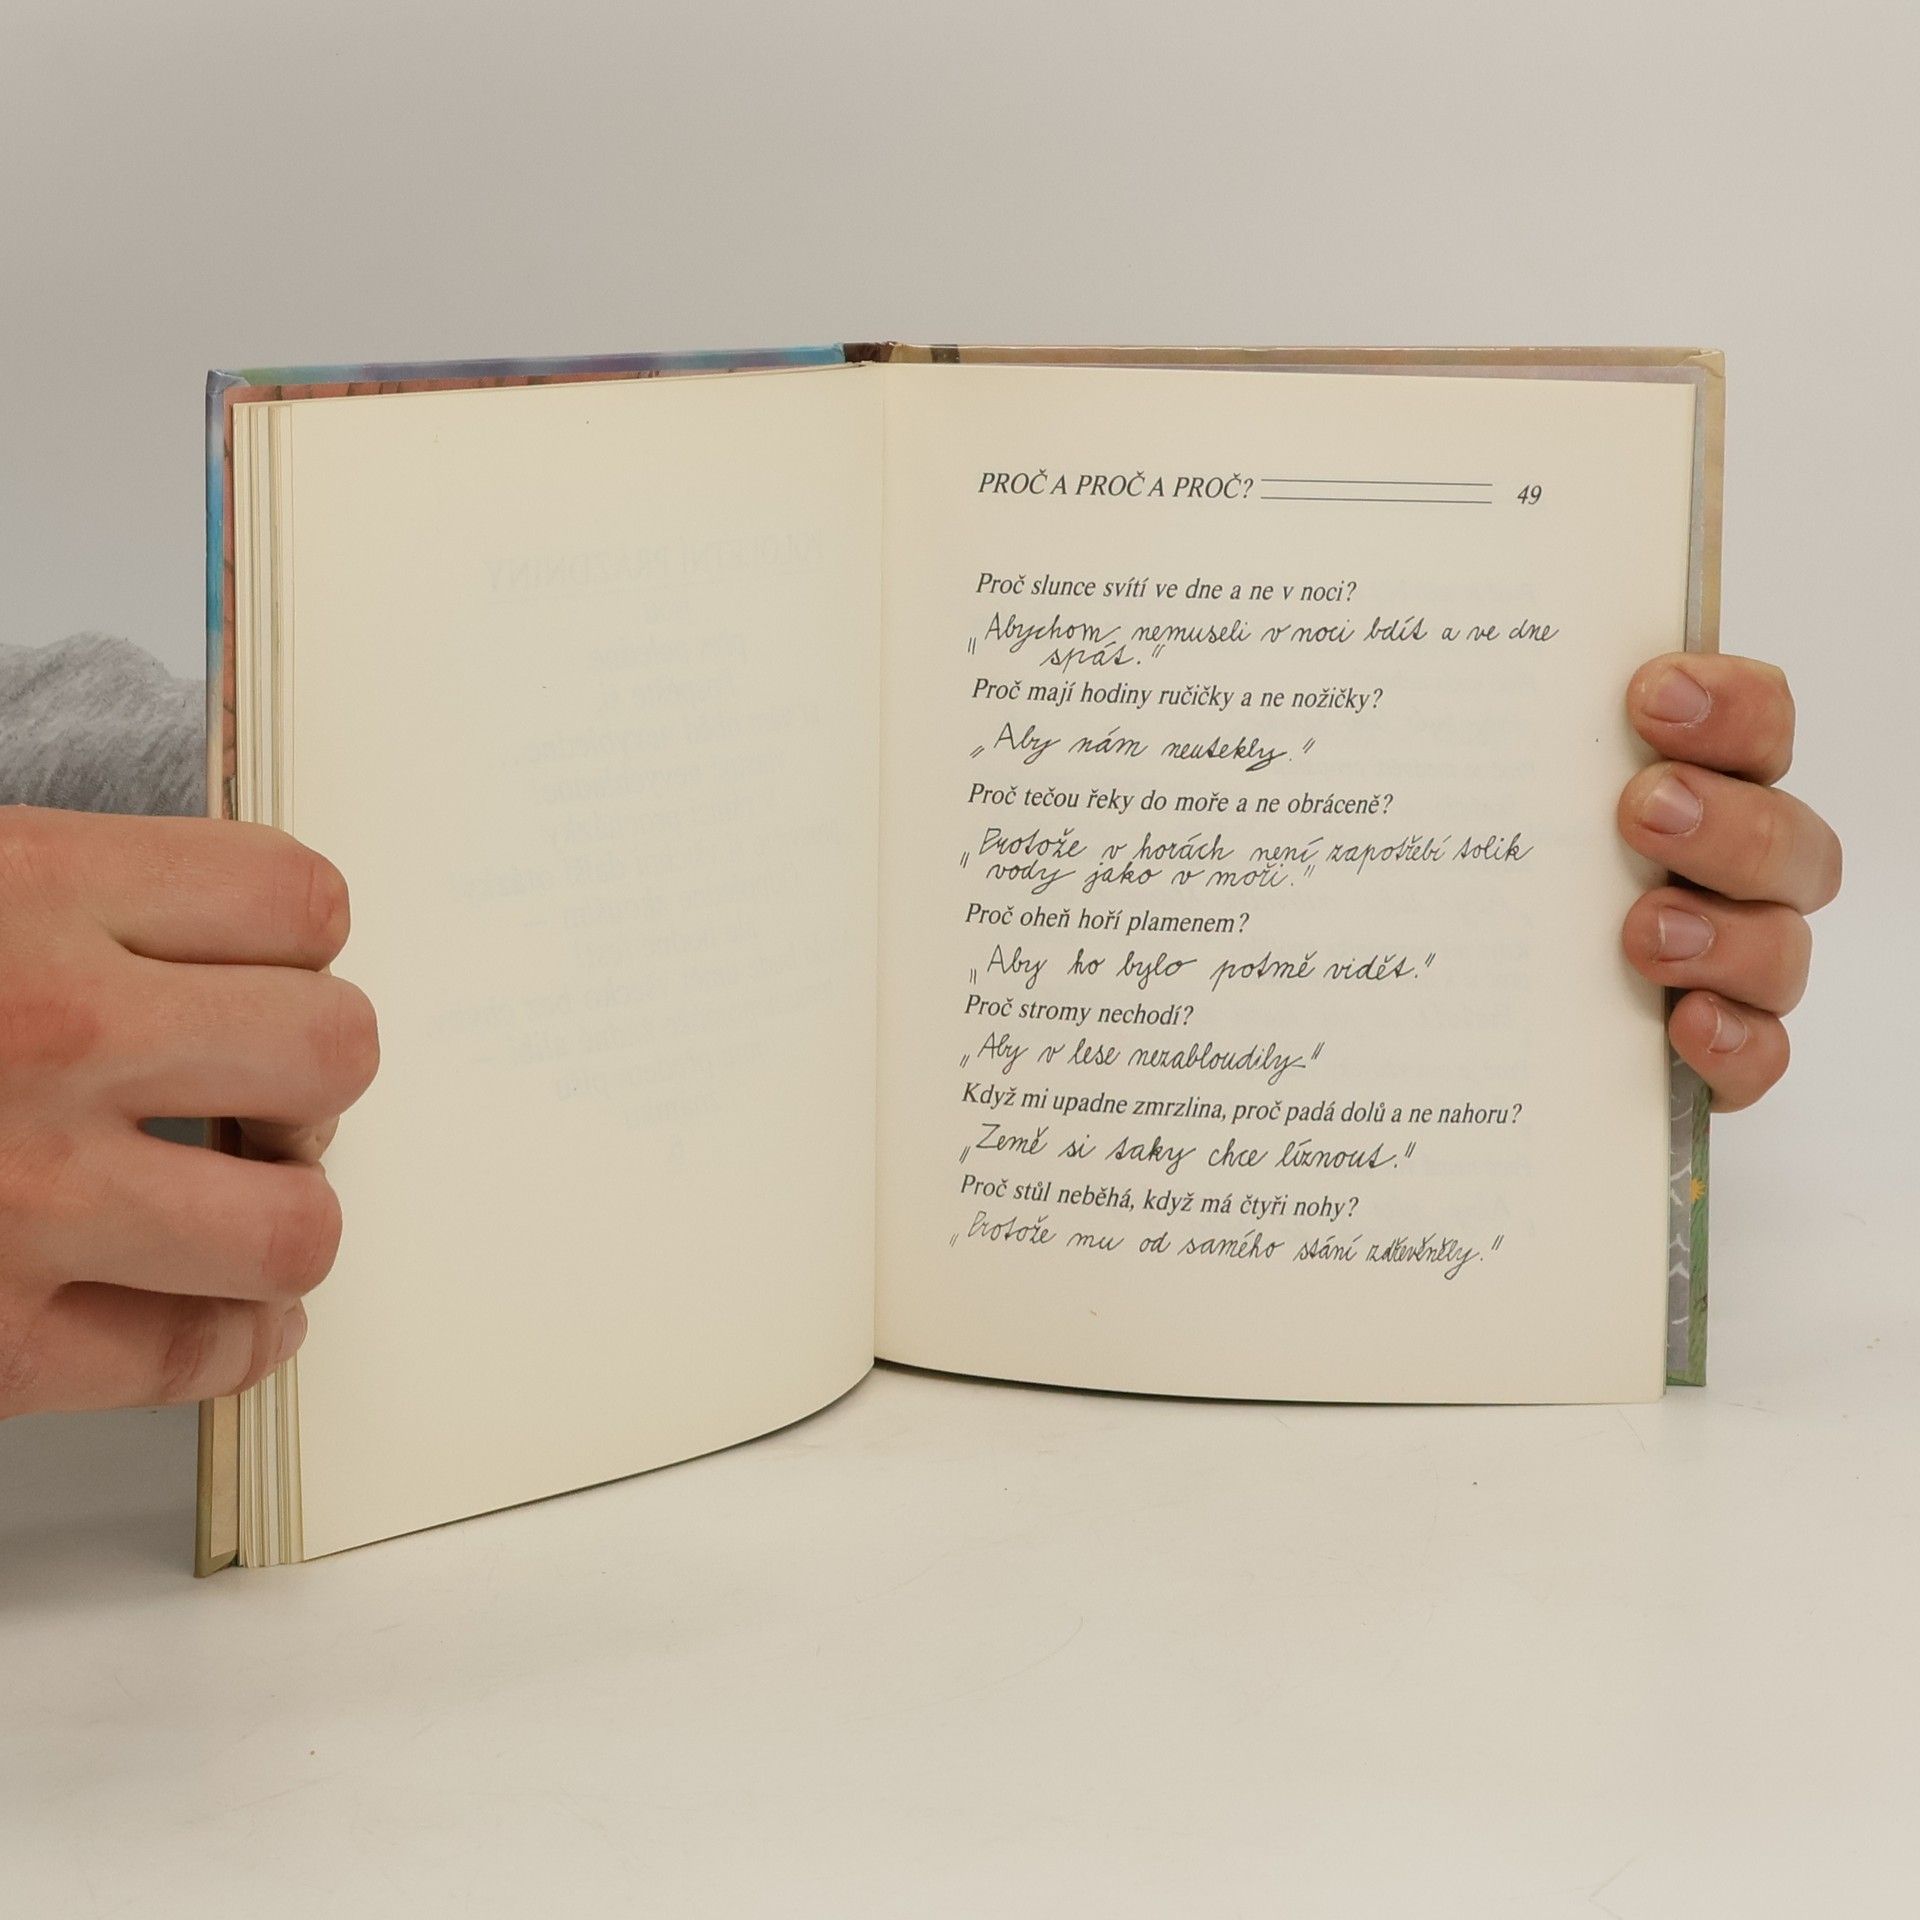 PROČ A PROČ A PROČ? 49
Proč slunce svítí ve dne a ne v noci?
„Abychom nemuseli v noci bdít a ve dne
spát.“
Proč mají hodiny ručičky a ne nožičky?
„Aby nám neutekly.“
Proč tečou řeky do moře a ne obráceně?
„Protože v horách není zapotřebí tolik
vody jako v moři.“
Proč oheň hoří plamenem?
„Aby ho bylo potmě vidět.“
Proč stromy nechodí?
„Aby v lese nezabloudily.“
Když mi upadne zmrzlina, proč padá dolů a ne nahoru?
„Země si taky chce líznout.“
Proč stůl neběhá, když má čtyři nohy?
„Protože mu od samého stání zdřevěněly.“